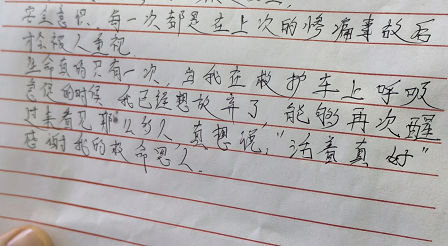 安全意识，每一次都是在上次的惨痛事故后
才会被人重视
生命真的只有一次，当我在救护车上呼吸
衰促的时候，我已经想放弃了，能够再次醒
过来看见那么多人，真想说，“活着真好”
感谢我的救命恩人。